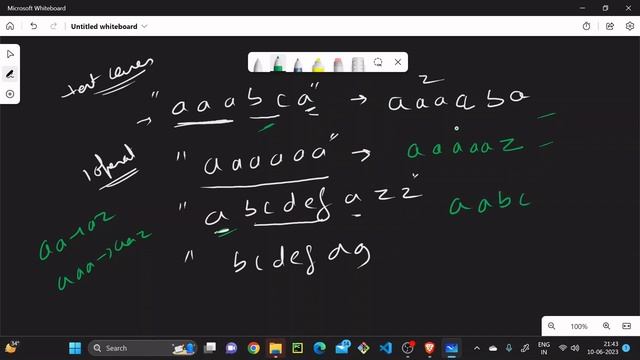 Microsoft Whiteboard
Untitled whiteboard
test cases
2
" a a a b c a " → a a a a b a
1 operat
" a a a a a a " → a a a a a z
" a b c d e f a z z " a a b c
aa → az
aaa → aaz
" b c d e f a g
100%
34°
Search
ENG
IN
21:43
10-06-2023